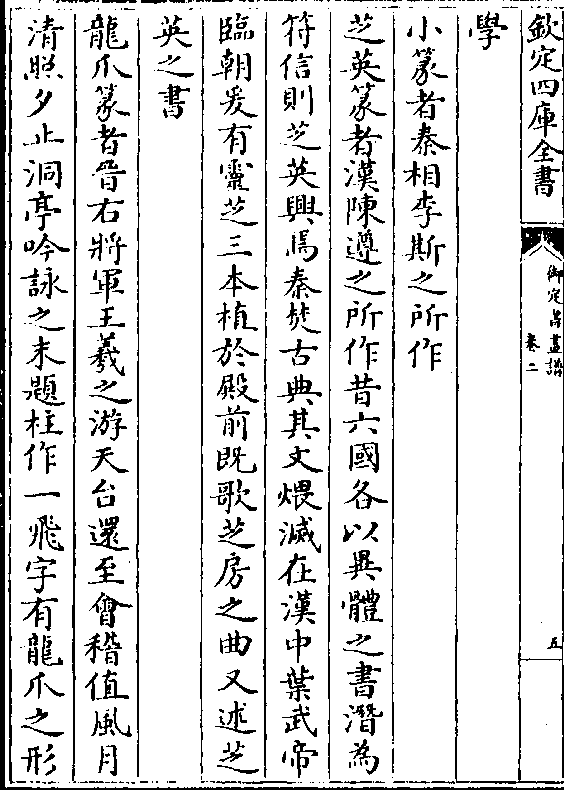 欽定四庫全書
御定書畫譜
卷二
五
學
小篆者秦相李斯之所作
芝英篆者漢陳遵之所作昔六國各以異體之書潛為
符信則芝英興焉秦焚古典其文煨滅在漢中葉武帝
臨朝爰有靈芝三本植於殿前既歌芝房之曲又述芝
英之書
龍爪篆者晉右將軍王羲之游天台還至會稽值風月
清照夕止洞亭吟詠之末題柱作一飛字有龍爪之形